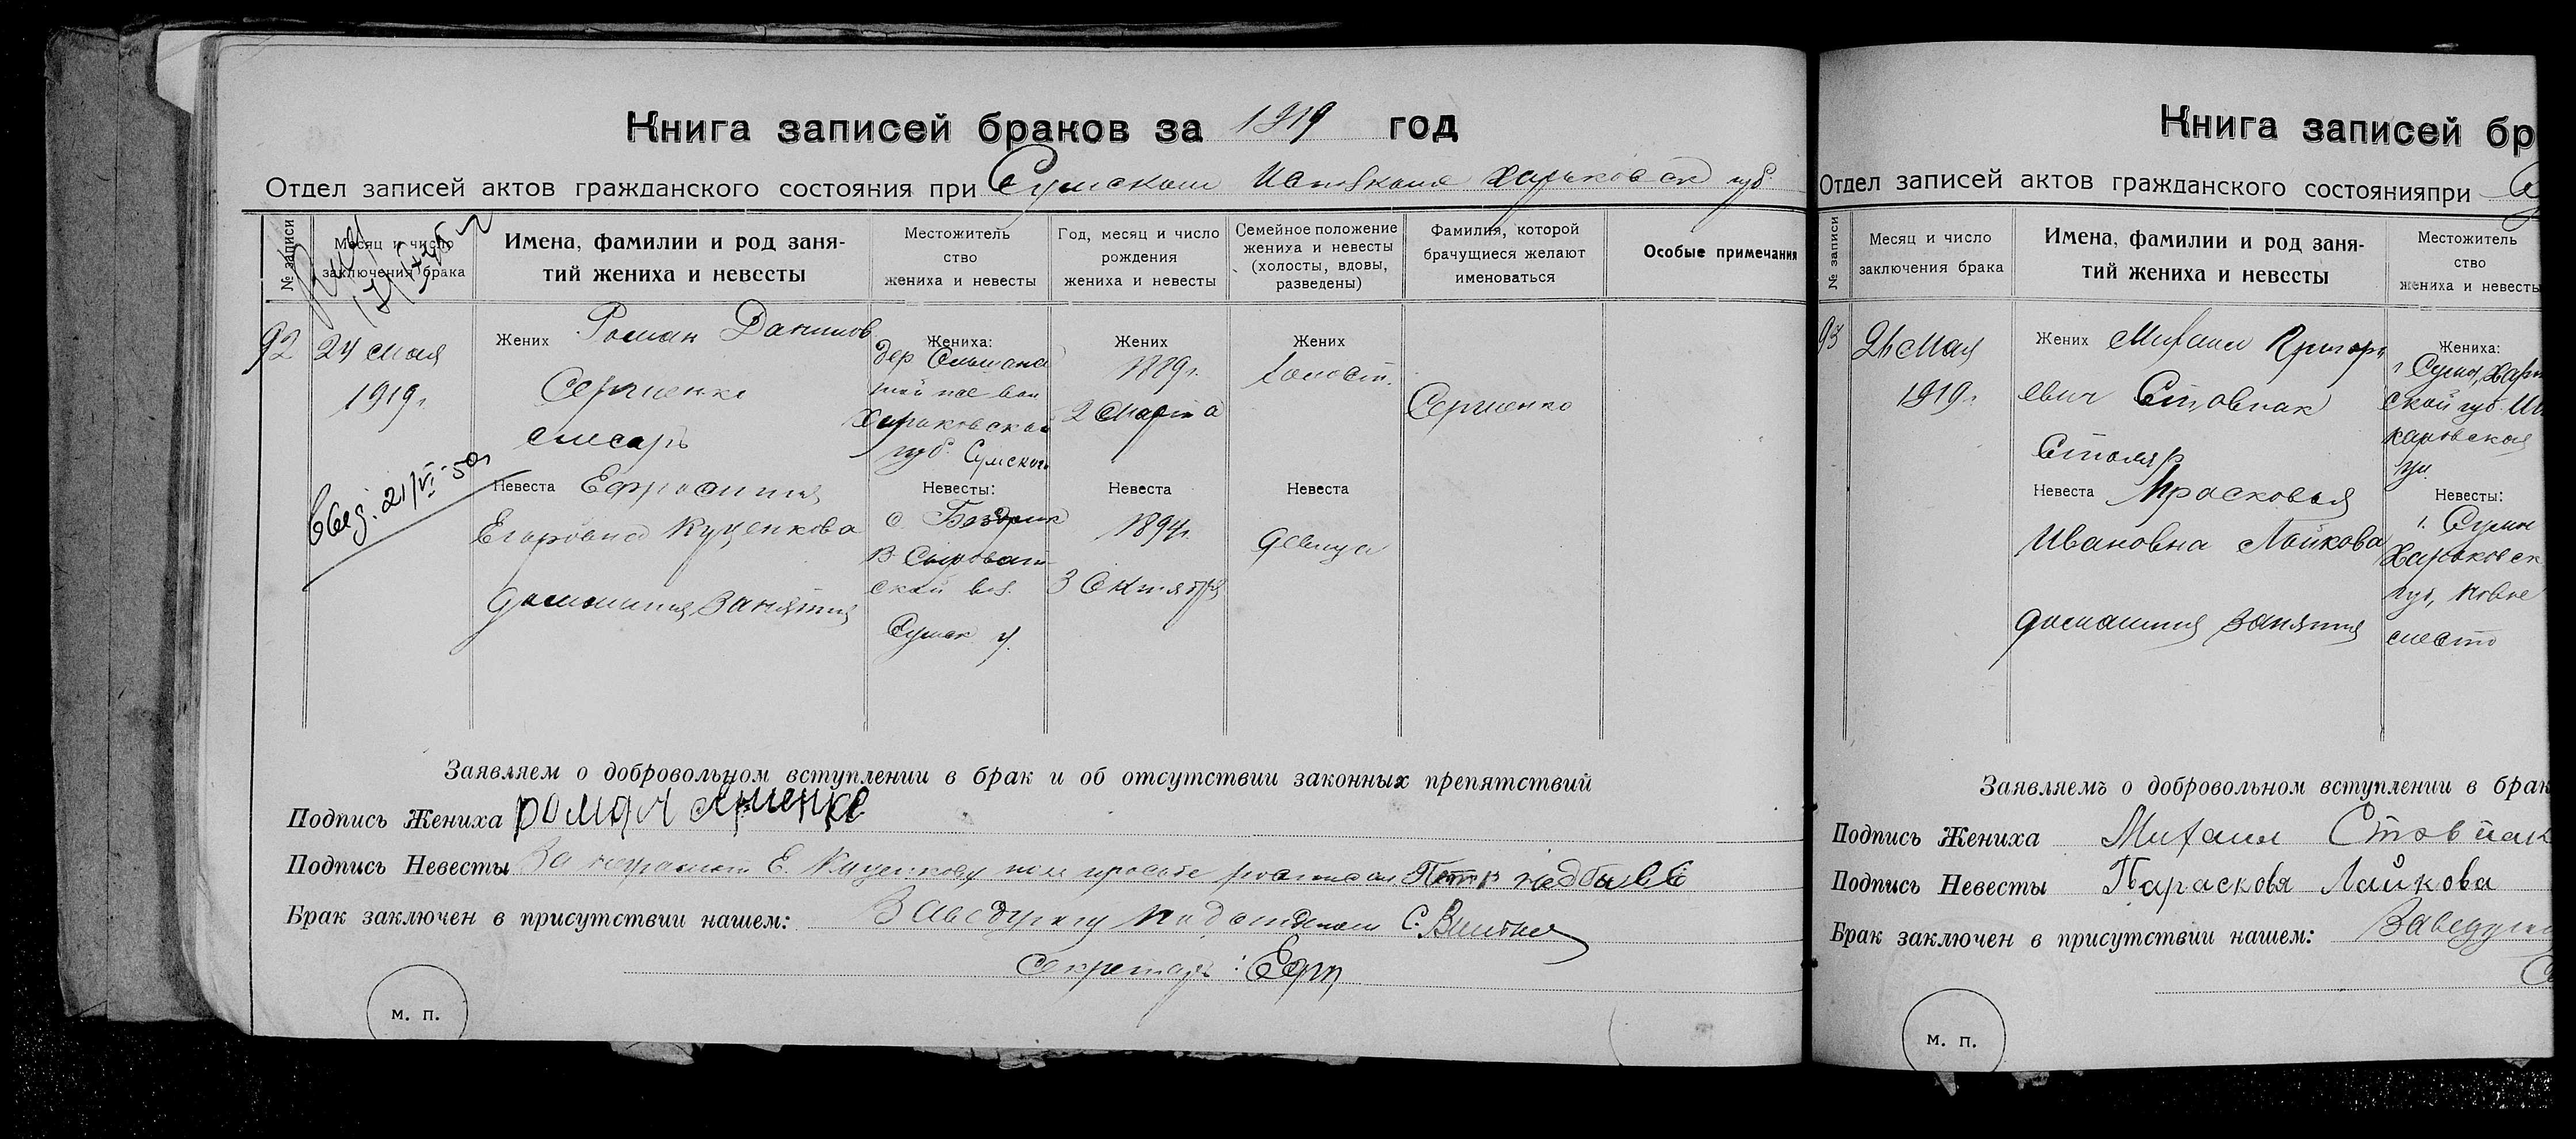 Книга записей браков за 1919 год
Отдел записей актов гражданского состояния при Сумском Харьковск губ.
№ записи
Месяц и число
заключения брака
Имена, фамилии и род заня-
тий жениха и невесты
Местожитель
ство
жениха и невесты
Год, месяц и число
рождения
жениха и невесты
Семейное положение
жениха и невесты
(холосты, вдовы,
разведены)
Фамилия, которой
брачущиеся желают
именоваться
Особые примечания
92
24 мая
1919 г.
Жених Роман Данилов
Сергиенко
слесарь
Жениха:
дер
Харьковской
губ. Сумского
Жених
1889 г.
2 Марта
Жених
холост.
Сергиенко
21/VI-50
Невеста Ефросиния
Егоровна Куценкова
домашния занятия
Невесты:
с. Бездрик
В Сыроват
ской вол.
Сумск у.
Невеста
1894 г.
3 Октября
Невеста
девица
Заявляем о добровольном вступлении в брак и об отсутствии законных препятствий
Подпись Жениха роман
Подпись Невесты За неграмотн Е. Куценкову по ея просьбе росписал Петр
Брак заключен в присутствии нашем: Заведующ Подотделом С.
Секретарь:
м. п.
Книга записей бр
Отдел записей актов гражданского состоянияпри
№ записи
Месяц и число
заключения брака
Имена, фамилии и род заня-
тий жениха и невесты
Местожитель
ство
жениха и невесты
93
24 Мая
1919 г.
Жених Михаил Григорь
евич Стовпак
Столяр
Жениха:
г Сумы, Харьк
ской губ.
ул.
Невеста Прасковья
Ивановна Лайкова
домашния занятия
Невесты:
г. Сумы
Харьковск
губ, Новое
место
Заявляемъ о добровольном вступлении в брак
Подпись Жениха Михаил Стовпак
Подпись Невесты Парасковя Лайкова
Брак заключен в присутствии нашем: Заведующ
м. п.